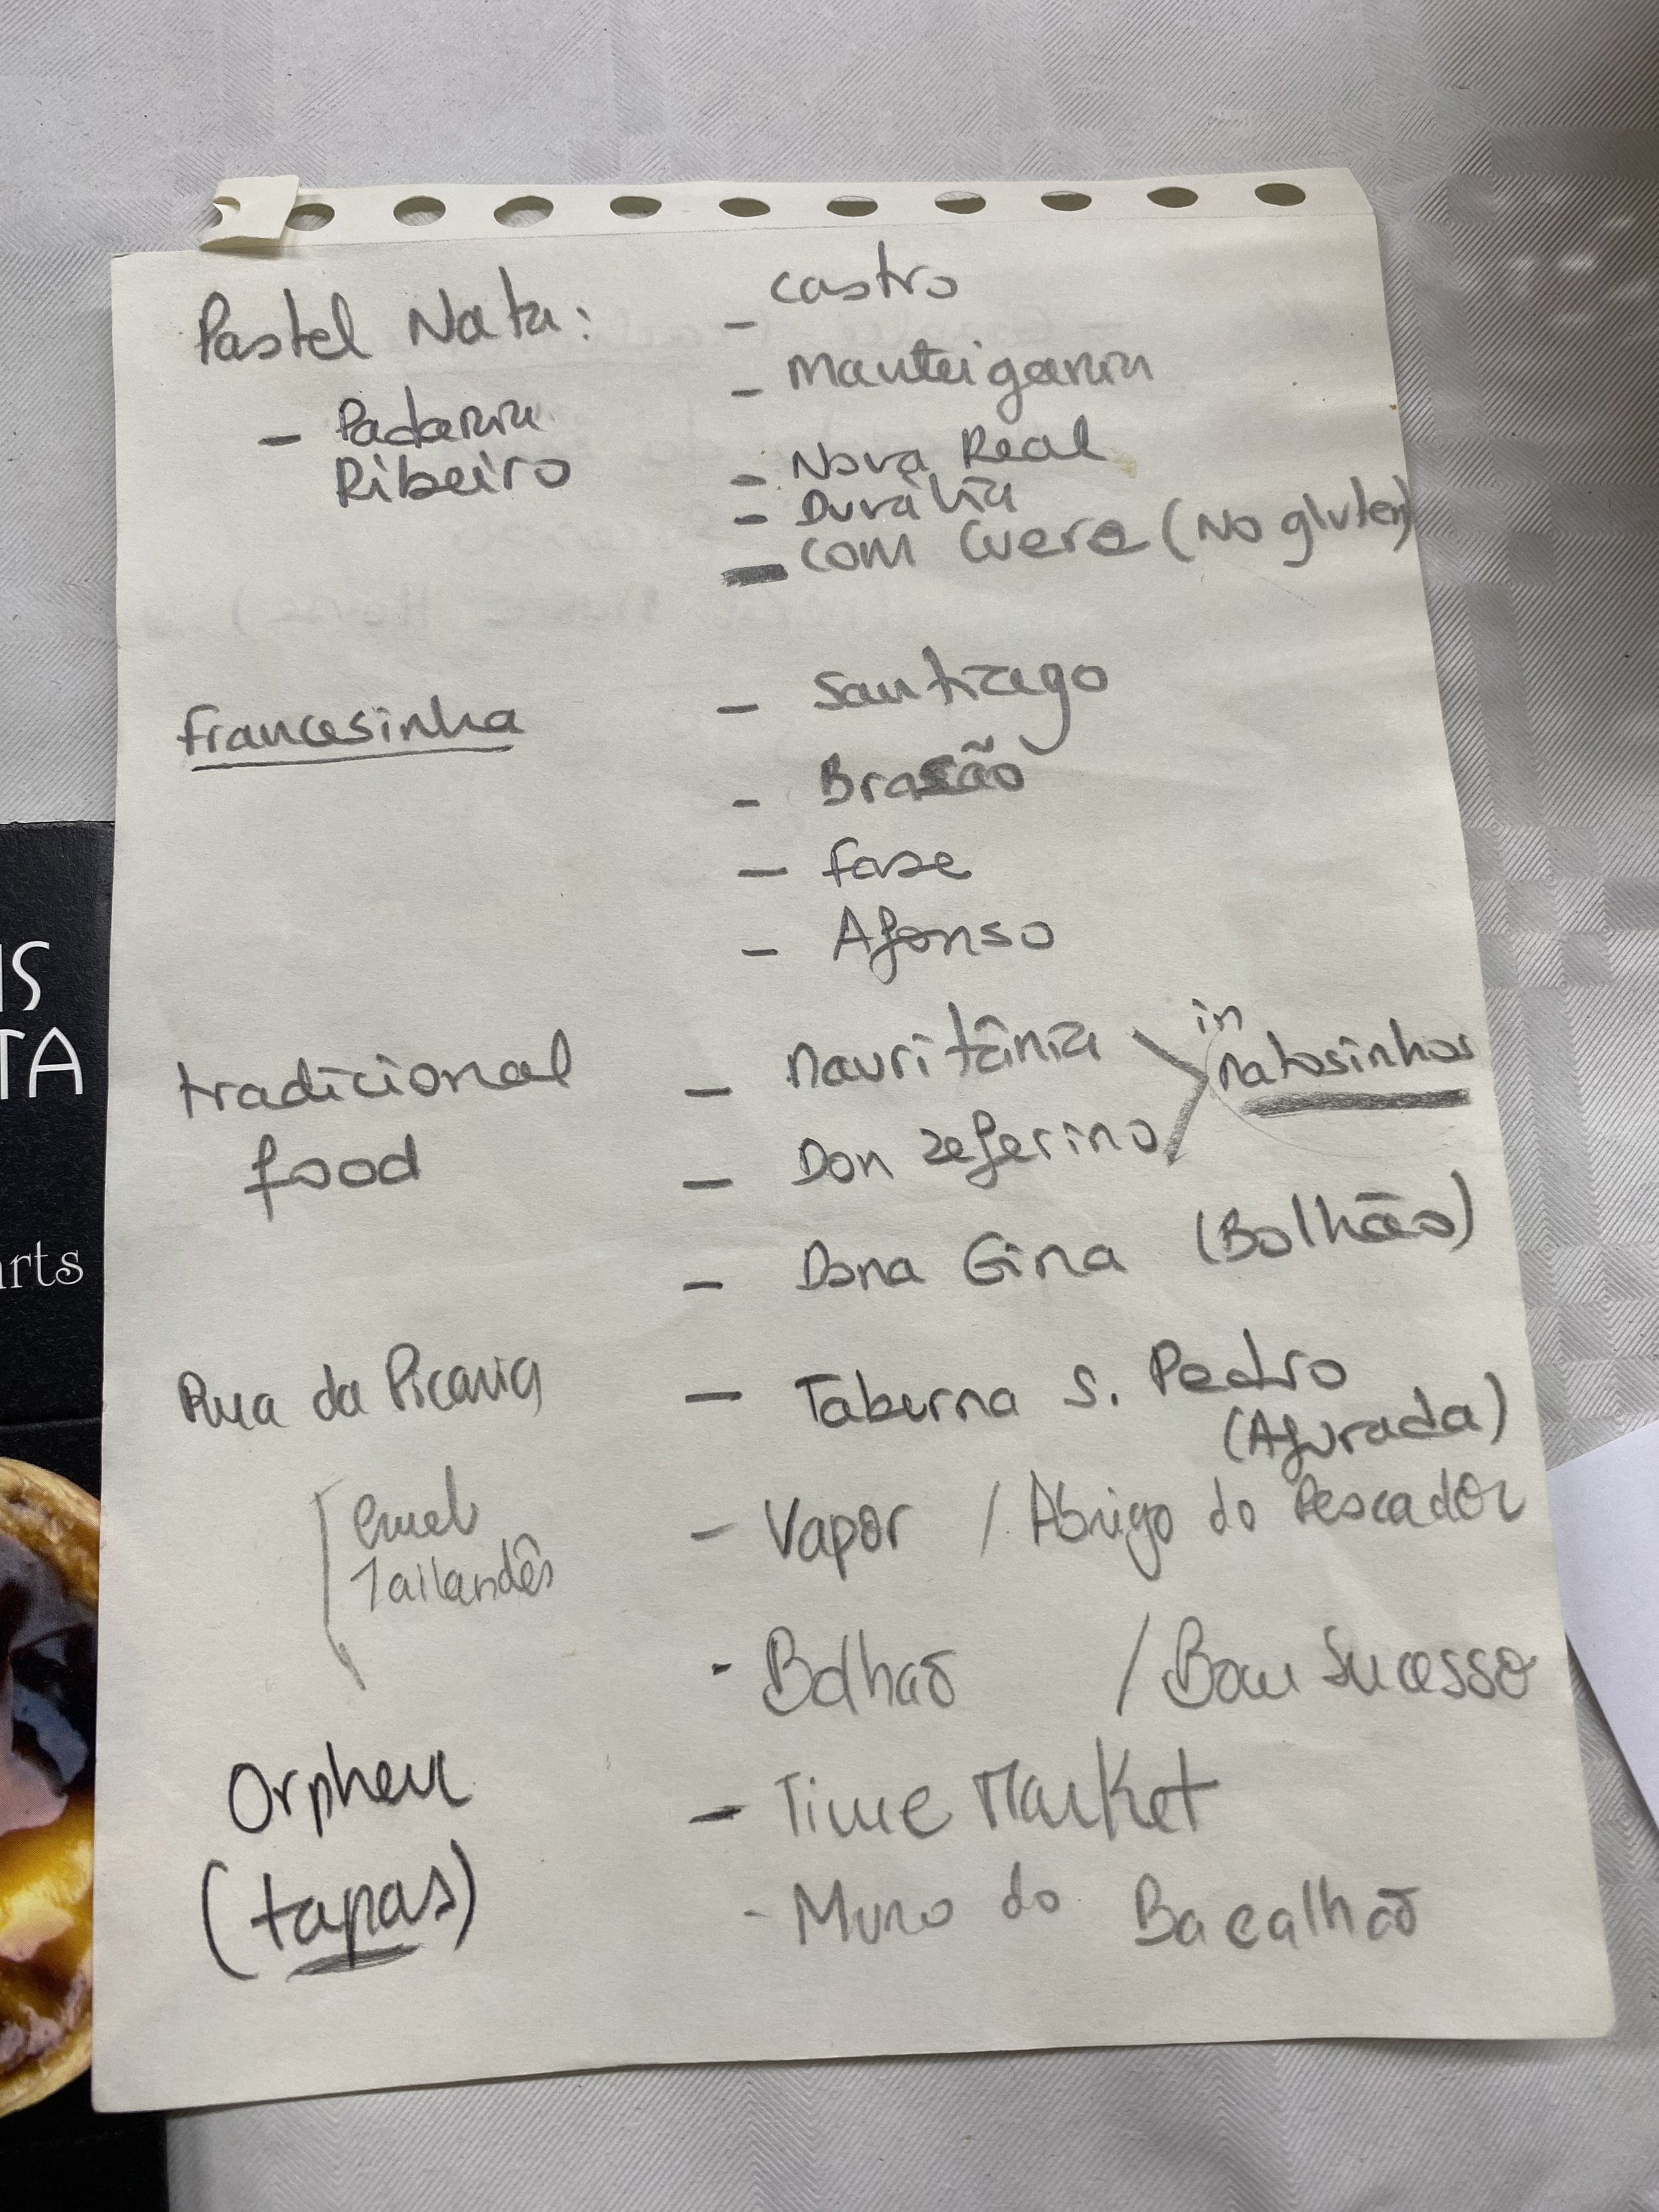 Pastel Nata:
- Padaria
Ribeiro
- Castro
- Manteigaria
- Nova Real
- Durália
- com Cuera (No gluten)
Francesinha
- Santiago
- Brasão
- Fase
- Afonso
tradicional
food
- Mauritânia
- Don Zeferino
in
Matosinhos
- Dona Gina (Bolhão)
Rua da Picaria
Tailandês
- Taberna S. Pedro
(Afurada)
- Vapor / Abrigo do Pescador
- Bolhão / Bom Sucesso
Orpheu
(tapas)
- Time Market
- Muro do Bacalhão
IS
TA
arts